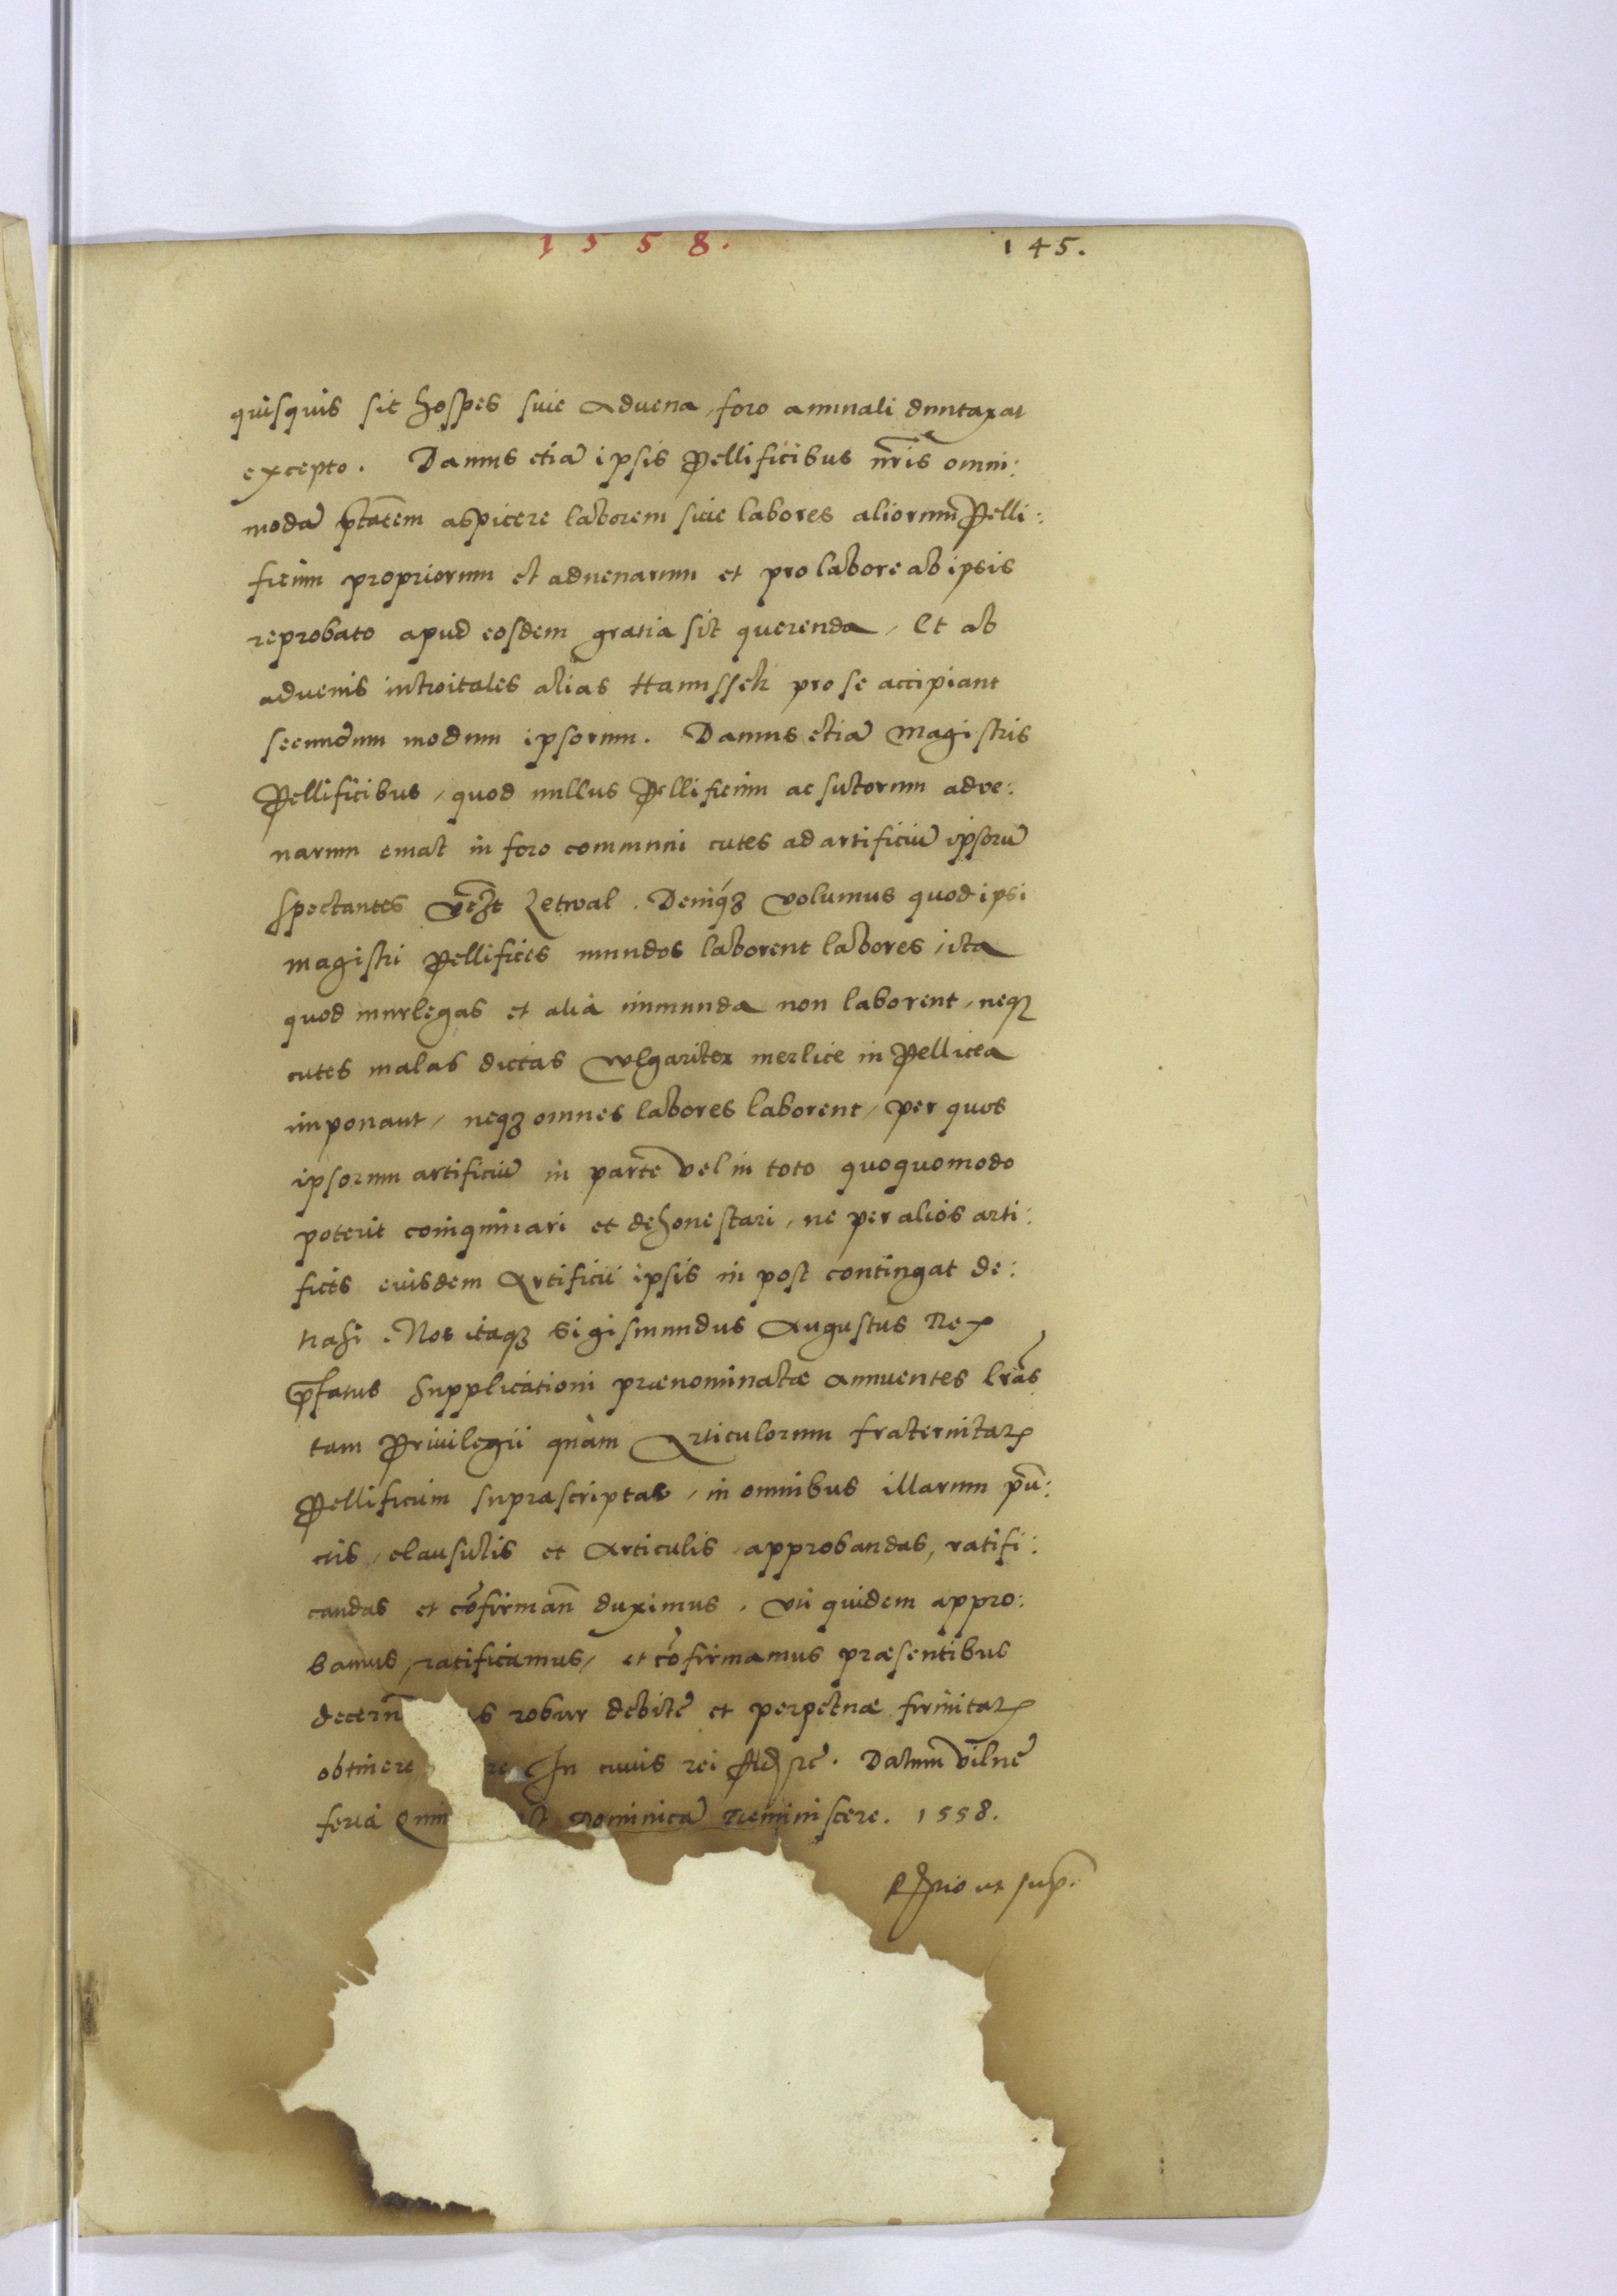 1558.
145.
quisquis sit hospes siue Aduena, foro annuali duntaxat
excepto. Damus etiã ipsis Pellificibus nr̃is omni:
modã ptãtem aspicere laborem siue labores aliorum Pelli:
ficum propriorum et aduenarum et pro labore ab ipsis
reprobato apud eosdem gratia sit querenda, Et ab
aduenis introitales alias Hannssek pro se accipiant
secundum modum ipsorum. Damus etiã Magistris
Pellificibus, quod nullus Pellificum ac sutorum adue:
narum emat in foro communi cutes ad artificiũ ipsorũ
spectantes Letwal. Deniq3 volumus quod ipsi
magistri Pellifices mundos laborent labores, ita
quod murlegas et alia immunda non laborent, neq3
cutes malas dictas vulgariter merlice in Pellicea
imponant, neq3 omnes labores laborent, per quos
ipsorum artificiũ in parte vel in toto quoquomodo
poterit coinquinari et dehonestari, ne per alios arti:
fices eiusdem Artificii ipsis in post contingat de:
trahi. Nos itaq3 Sigismundus Augustus Rex
p̃fatus supplicationi prænominatæ annuentes lrãs
tam Priuilegii quàm Articulorum fraternitatis
Pellificum supræscriptas, in omnibus illarum pũ:
ctis, clausulis et Articulis approbandas, ratifi:
candas et cõfirmañ duximus. Vti quidem appro:
bamus, ratificamus, et cõfirmamus præsentibus
decerñ s robur debitẽ et perpetuæ firmitatis
obtinere re In cuius rei fid rẽ. Datum Vilnẽ
feria Quin st Dominicã Reminiscere. 1558.
ut sup̃.